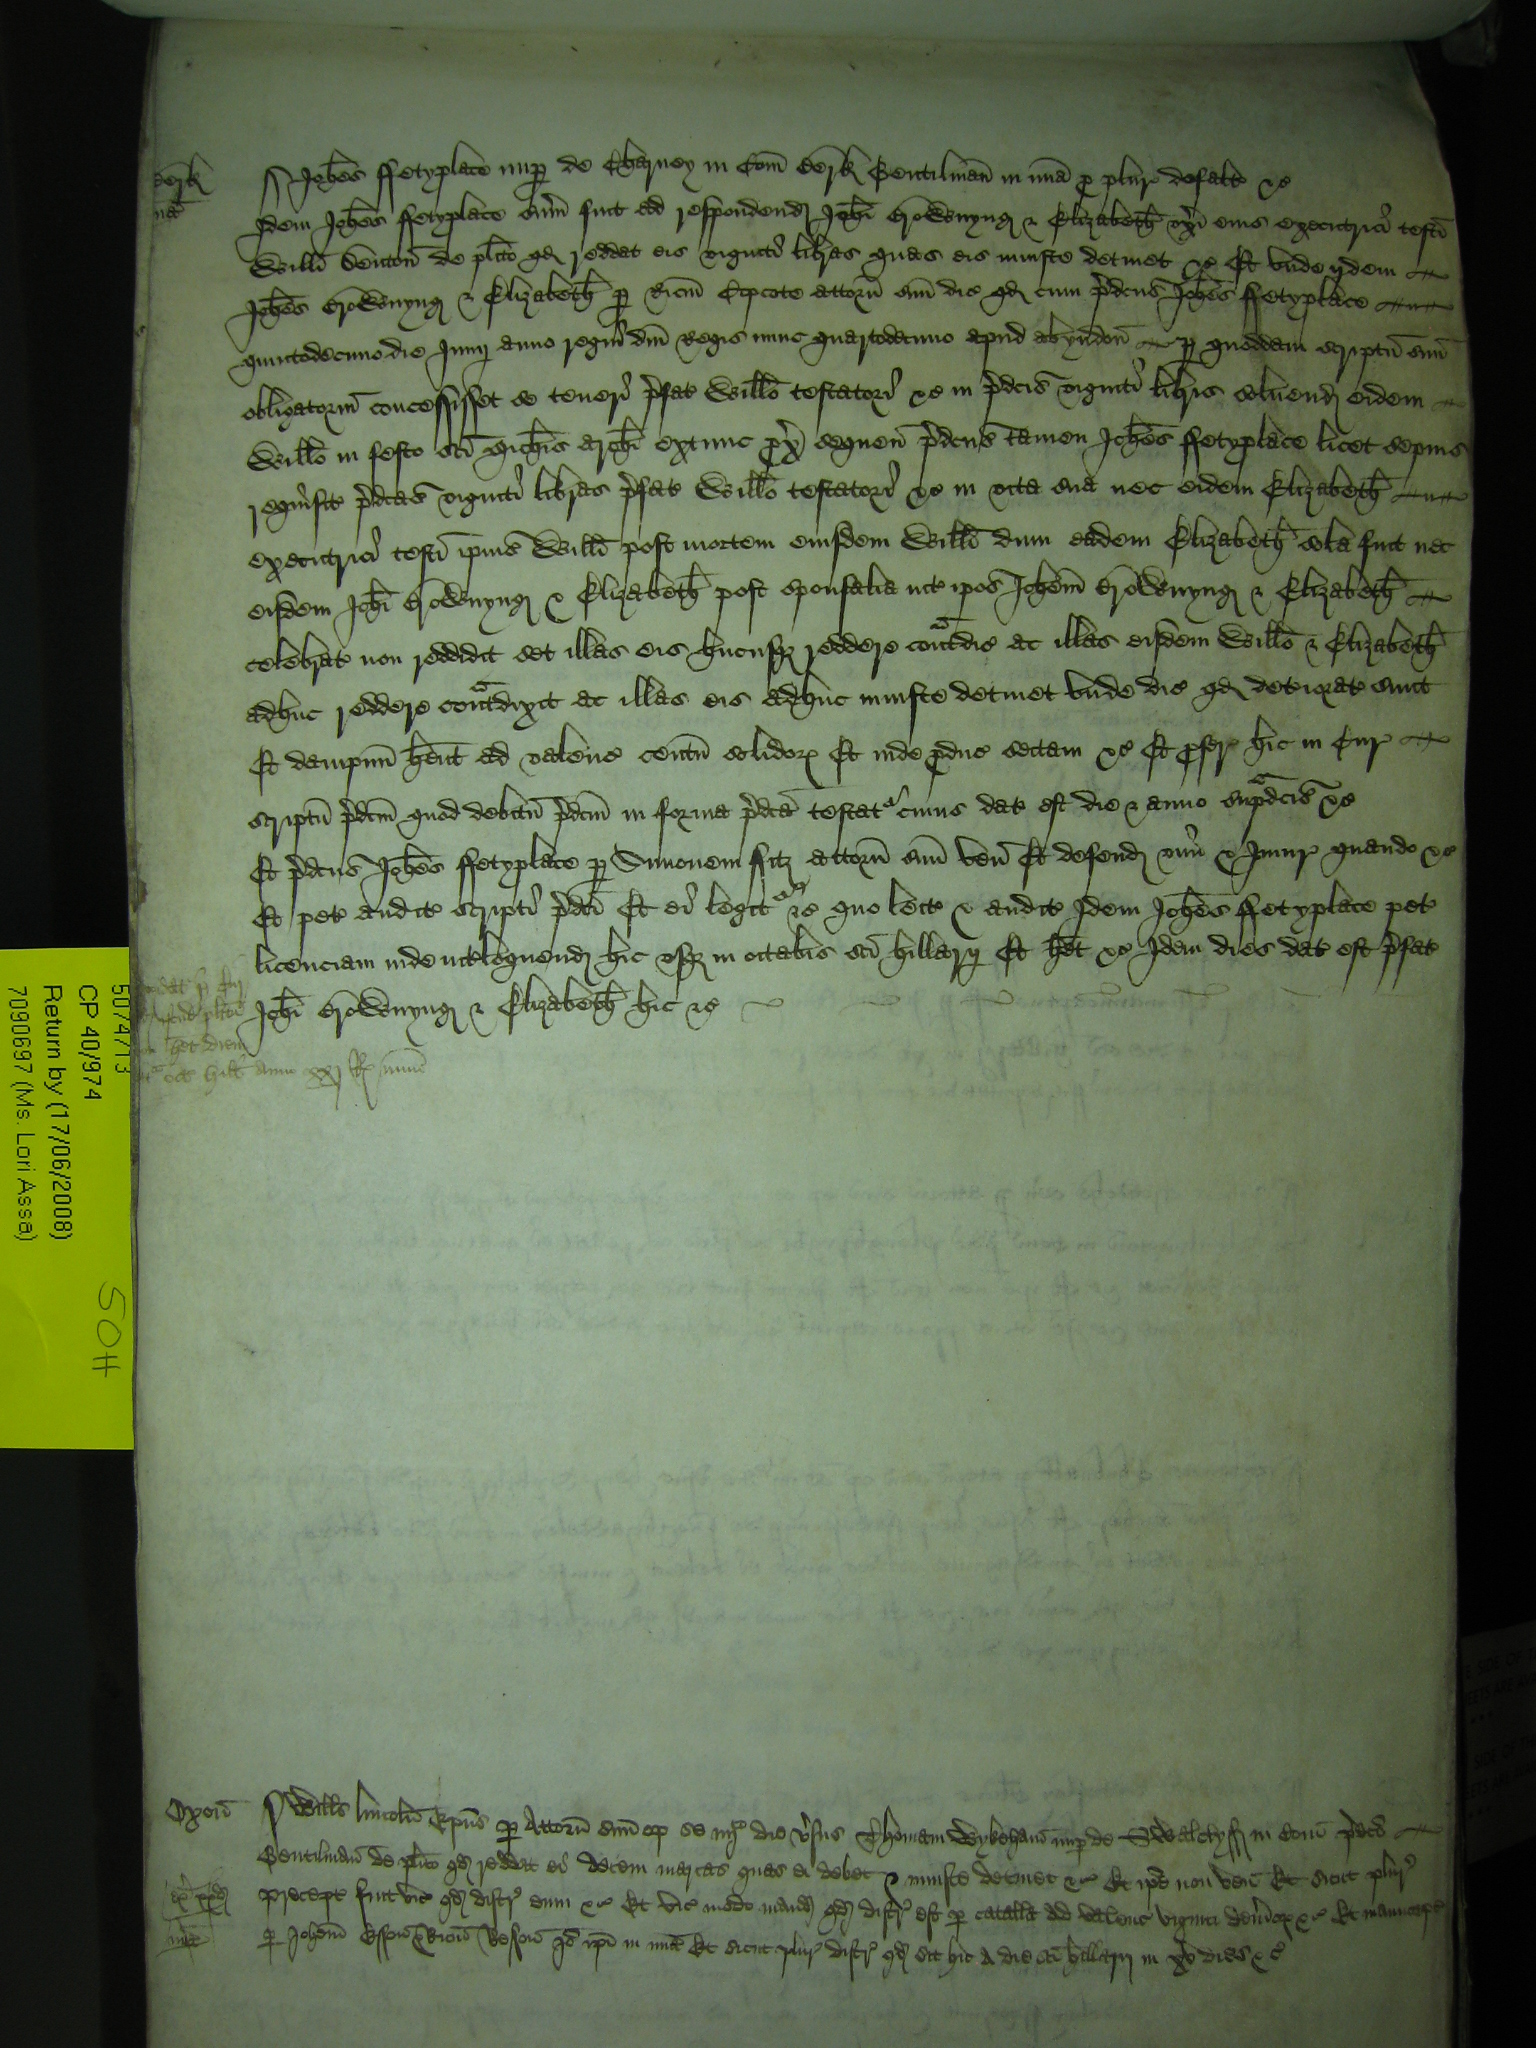 Berk
Joh̄es ffetyplace nup de Charney in Com̄ Berk Gentilman in mia p plur defalt &c
Idem Joh̄es ffetyplace sum̄ fuit ad respondend Joh̄i Brownyng & Elizabeth ux̄i eius executrici testi
Will̄i de pl̄ito qd reddat eis viginti libras quas eis iniuste detinet &c Et unde ijdem
Joh̄es Brownyng & Elizabeth p Ric̄m Eycote attorn̄ suū dic qd cum p̄dcus Joh̄es ffetyplace
quintodecimo die Junij anno regni dn̄i Regis nunc quartodecimo apud abyndon̄ p quoddam scriptū suū
obligatoriū concessisset se teneri p̄fat Will̄o testatori &c in p̄dcis viginti libris solvend eidem
Will̄o in festo sc̄i Mich̄is arch̄i extunc px̄ sequen̄ p̄dcus tamen Joh̄es ffetyplace licet sepius
requisit p̄dcas viginti libras p̄fat Will̄o testatori &c in vita sua nec eidem Elizabeth
executrici testi ip̄ius Will̄i post mortem eiusdem Will̄i dum eadem Elizabeth sola fuit nec
eisdem Joh̄i Brownyng & Elizabeth post sponsalia int ip̄os Joh̄em Brownyng & Elizabeth
celebrat non reddidit set illas eis hucusq reddere cont̄dic ac illas eisdem Will̄o & Elizabeth
adhuc reddere cont̄dixit ac illas eis adhuc iniuste detinet unde dic qd deteriorat sunt
Et dampnū hent ad valenc centū solidor Et inde pduc sectam &c Et pfer hic in Cur
scriptū p̄dcm quod debitū p̄dcm in forma p̄dca testat cuius dat est die & anno sup̄dcis &c
Et p̄dcus Joh̄es ffetyplace p Simonem ffitz attorn̄ suū ven̄ Et defend vim & Iniur quando &c
Et pet audit scripti p̄dci Et ei legit &c quo lect & audit Idem Joh̄es ffetyplace pet
licenciam inde int̄loquend hic usq in octabis sc̄i hillarij Et h̄et &c Idem dies dat est p̄fat
Joh̄i Brownyng & Elizabeth hic &c
h̄et diem
oct hill̄ anno xxj R nunc
Oxon̄
Will̄s lincoln̄ Ep̄us p Attorn̄ suū op se iiij die v̄sus Thomam Wykeham nup de Swalclyff in Com̄ p̄dco
Gentilman̄ de pl̄ito qd reddat ei decem marcas quas ei debet & iniuste detinet &c Et ip̄e non ven̄ Et sicut plur
precept fuit vic qd distr eum &c Et vic modo mand qd distr est p catalla ad valenc viginti denar &c Et manucapt
p Joh̄em & Ric̄m Io ip̄i in mia Et sicut plur distr qd sit hic A die sc̄i hillarij in xv dies &c
5074713
CP 40/974
Return by (17/06/2008)
7090697 (Ms. Lori Assa)
SOH